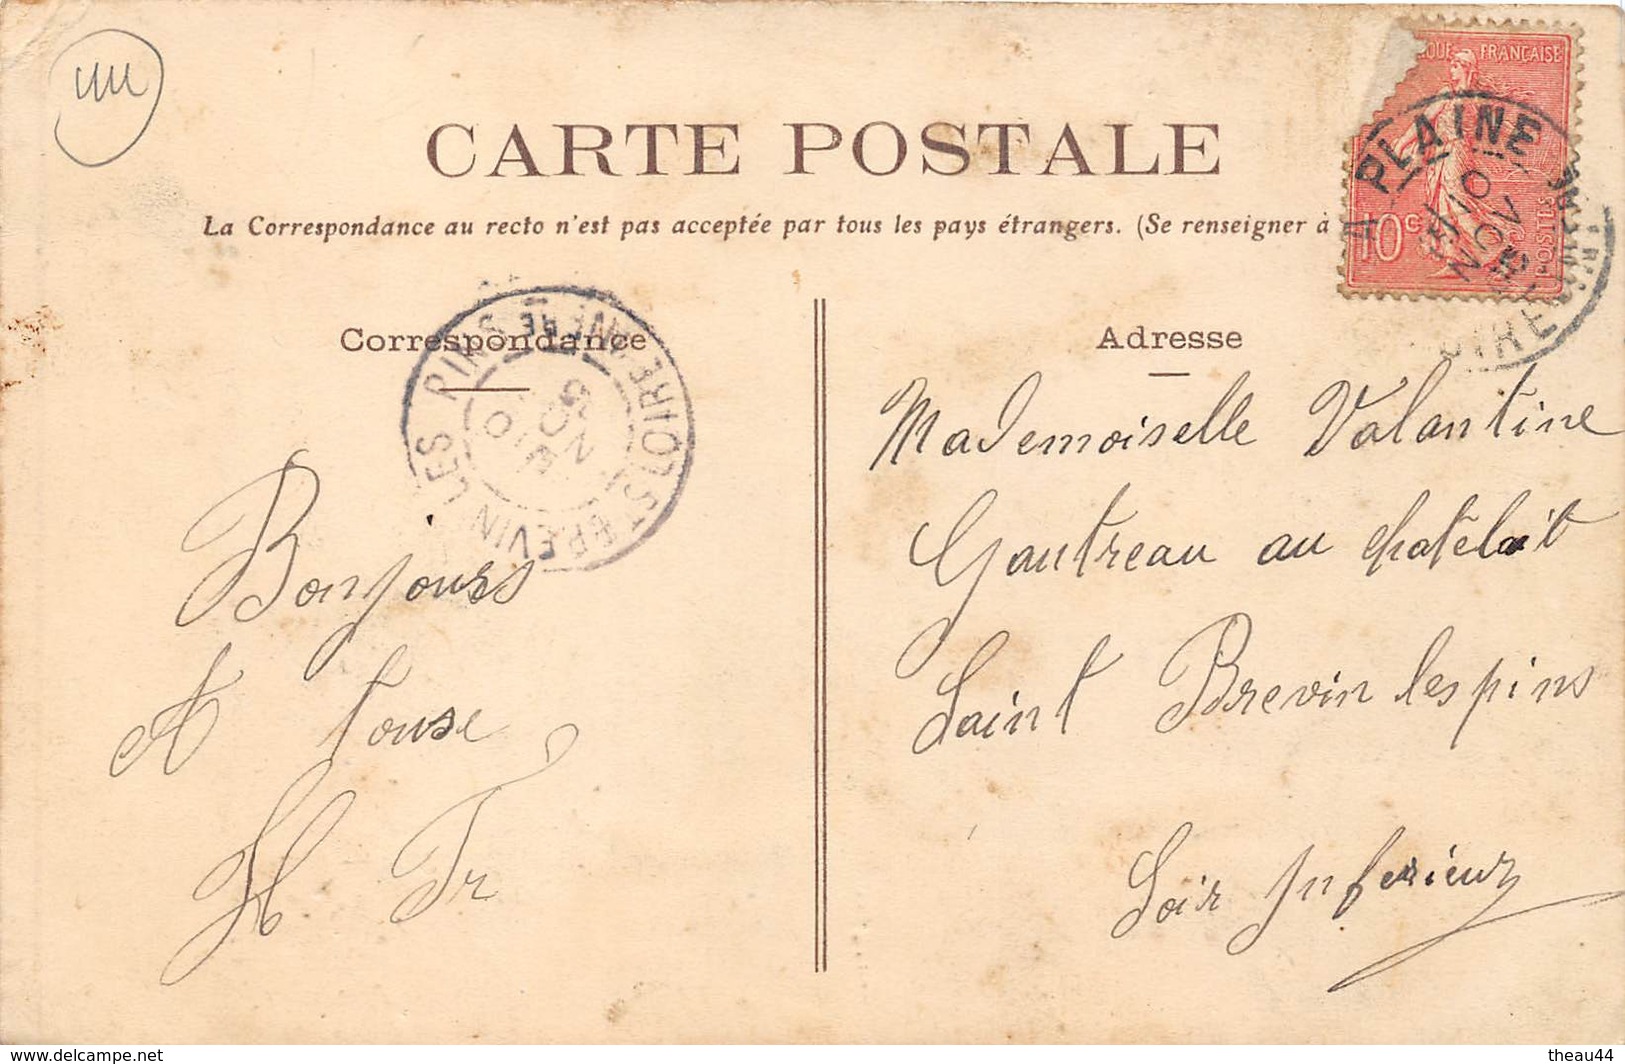 44
CARTE POSTALE
La Correspondance au recto n'est pas acceptée par tous les pays étrangers. (Se renseigner à
QUE FRANÇAISE
10c
POSTES
A PLAINE
NOV
Correspondance
Adresse
ST BREVIN LES PINS
LOIRE INFRE
NOV
Bonjours
A touse
H Tr
Mademoiselle Valantine
Gautreau au chatelait
Saint Brevin les pins
Loir Inferieur
www.delcampe.net
theau44